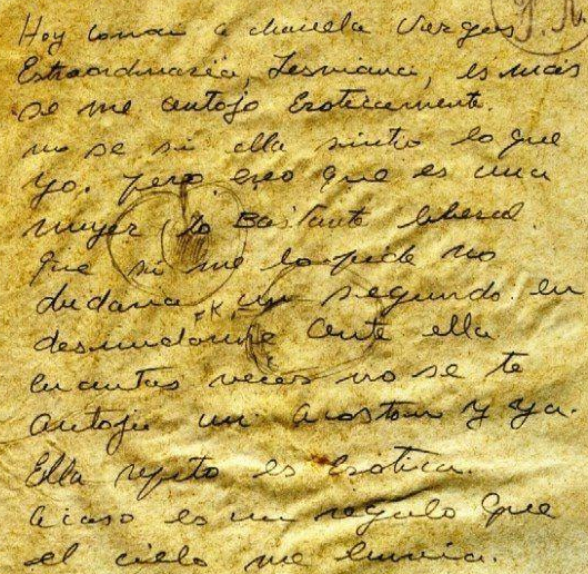 Hoy conoci a chavela Vargas.
Extraordinaria, Lesviana, es más
se me antojo Eroticamente.
no se si ella sintio lo que
yo. pero creo que es una
mujer lo Bastante liberal
que si me lo pide no
dudaria un segundo en
F.K.
desnudarme ante ella
cuantas veces no se te
antoja un acoston y ya.
Ella repito es Erotica.
acaso es un regalo que
el cielo me envia.